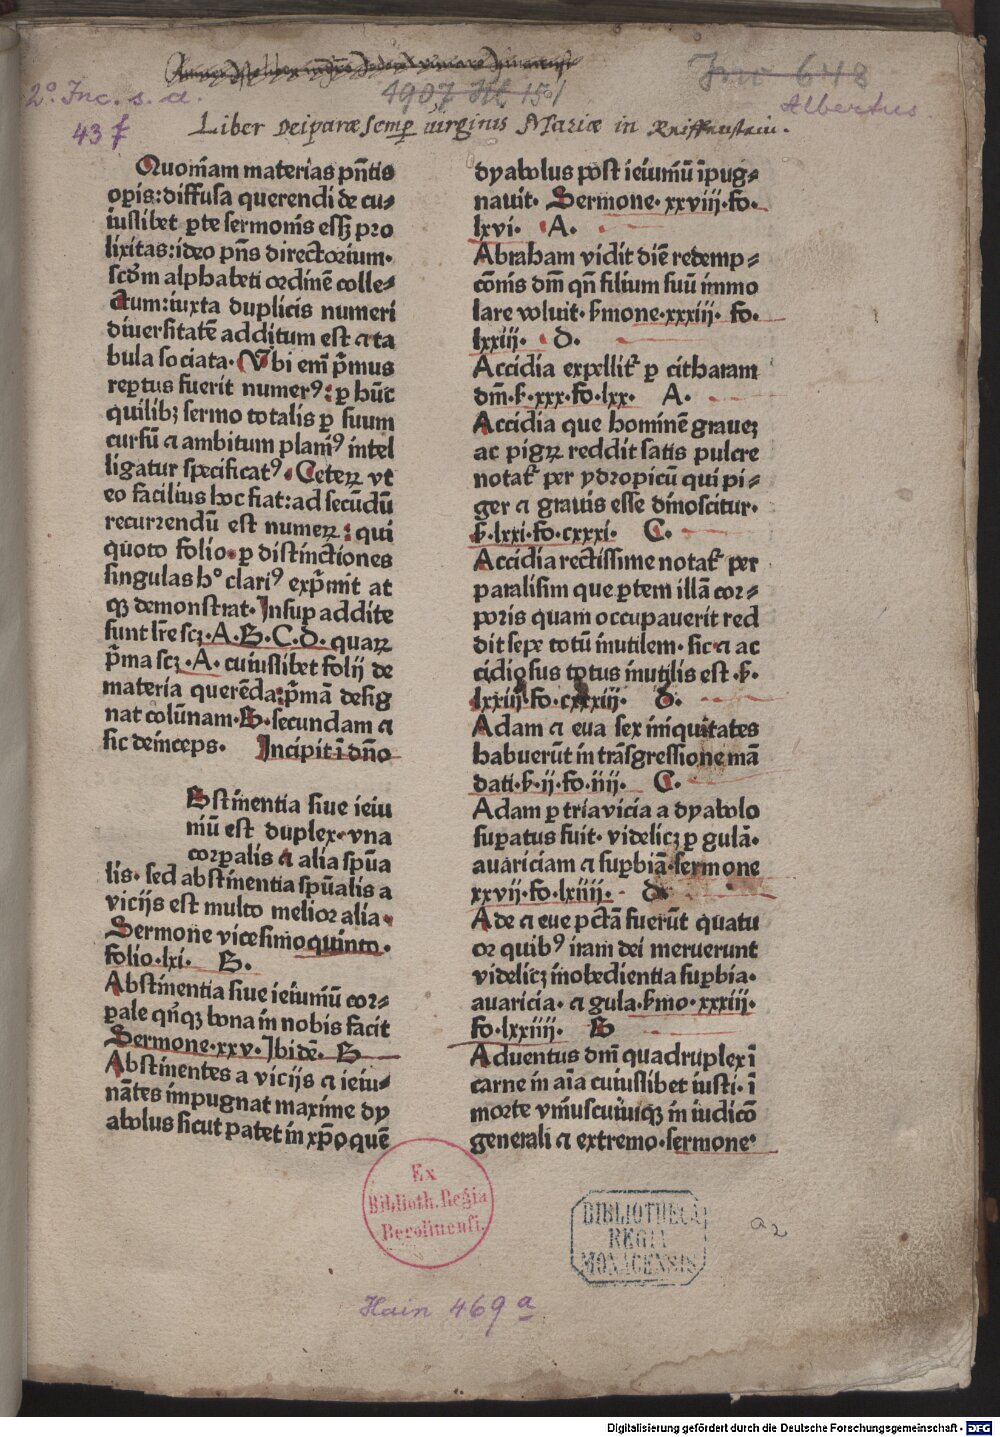 2° Inc. s. a.
43 f
1907 151
Inc 648
Albertus
Liber Deiparæ semp̲ virginis Mariæ in Reiffenstein.
Quoniam materias pn̄tis
op̲is: diffusa querendi de cu⸗
iuslibet p̲te sermonis essꝫ pro
lixitas: ideo pn̄s directorium·
scd̄m alphabeti ordinē colle⸗
ctum: iuxta duplicis numeri
diuersitatē additum est ⁊ ta
bula sociata· Vbi em̄ p̄mus
rep̲tus fuerit numerꝰ: p̲ hūc
quilibꝫ sermo totalis p̲ suum
cursū ⁊ ambitum planiꝰ intel
ligatur specificatꝰ· Ceterꝝ vt
eo facilius hoc fiat: ad secūdū
recurrendū est numerꝝ: qui
quoto folio· p̲ distinctiones
singulas h° clariꝰ exp̄mit at
qꝫ demonstrat· Insup̲ addite
sunt lr̄e scꝫ·A·B·C·D· quaꝝ
p̄ma scꝫ·A· cuiuslibet folij de
materia querēda: p̄mā desig
nat colūnam·B· secundam ⁊
sic deinceps· Incipit ī dn̄o
Bstinentia siue ieiu
niū est duplex· vna
corp̲alis ⁊ alia spūa
lis· sed abstinentia spūalis a
vicijs est multo melior alia·
Sermone vicesimoquinto·
folio·lxi· B·
Abstinentia siue ieiuniū cor⸗
p̲ale qn̄qꝫ bona in nobis facit
Sermone·xxv·Ibidē· B
Abstinentes a vicijs ⁊ ieiu⸗
nātes impugnat maxime dy
abolus sicut patet in xp̄o quē
dyabolus post ieiuniū īpug⸗
nauit· Sermone·xxviij·fo·
lxvi· A·
Abraham vidit diē redemp⸗
cōnis dm̄ qn̄ filium suū immo
lare voluit· s̄mone·xxxiij· fo·
lxxiij· D·
Accidia expellit᷑ p̲ citharam
dm̄·s̄·xxx·fo·lxx· A·
Accidia que hominē graueꝫ
ac pigꝝ reddit satis pulcre
notat᷑ per ydropicū qui pi⸗
ger ⁊ grauis esse dinoscitur·
s̄·lxxi·fo·cxxxi· C·
Accidia rectissime notat᷑ per
paralisim que p̲tem illā cor⸗
poris quam occupauerit red
dit sepe totū inutilem· sic ⁊ ac
cidiosus totus inutilis est·s̄·
lxxiij·fo·cxxxiij· D·
Adam ⁊ eua sex iniquitates
habuerūt in trāsgressione mā
dati·s̄·ij·fo·iiij· C·
Adam p̲ tria vicia a dyabolo
sup̲atus fuit· videlicꝫ p̲ gulā·
auariciam ⁊ sup̲biā· sermone
xxvij·fo·lxiiij· D·
Ade ⁊ eue pctā fuerūt quatu
or quibꝰ iram dei meruerunt
videlicꝫ inobedientia sup̲bia·
auaricia· ⁊ gula· s̄mo·xxxiij·
fo·lxxiiij· B
Aduentus dm̄ quadruplex ī
carne in aīa cuiuslibet iusti· ī
morte vniuscuiuqꝫ in iudicō
generali ⁊ extremo· sermone
Ex
Biblioth. Regia
Berolinensi.
BIBLIOTHECA
REGIA
MONACENSIS
a2
Hain 469 a
Digitalisierung gefördert durch die Deutsche Forschungsgemeinschaft - DFG